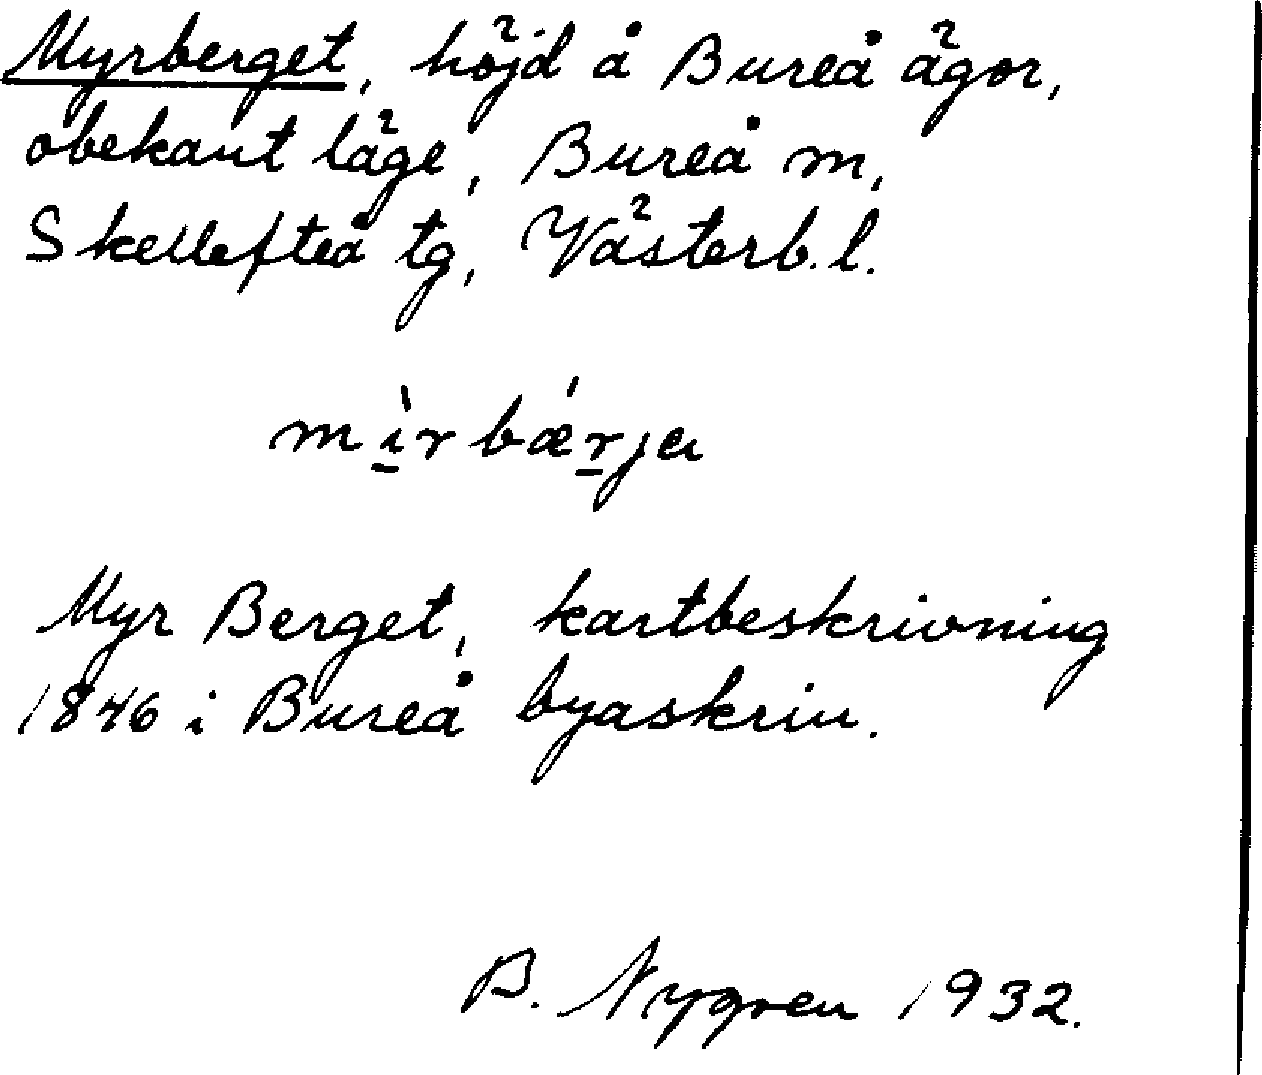 Myrberget, höjd å Bureå ägor,
obekant läge, Bureå m,
Skellefteå tg, Västerb. l.
mì̠rbǽr̠ja
Myr Berget, kartbeskrivning
1846 i Bureå byaskrin.
B. Nygren 1932.